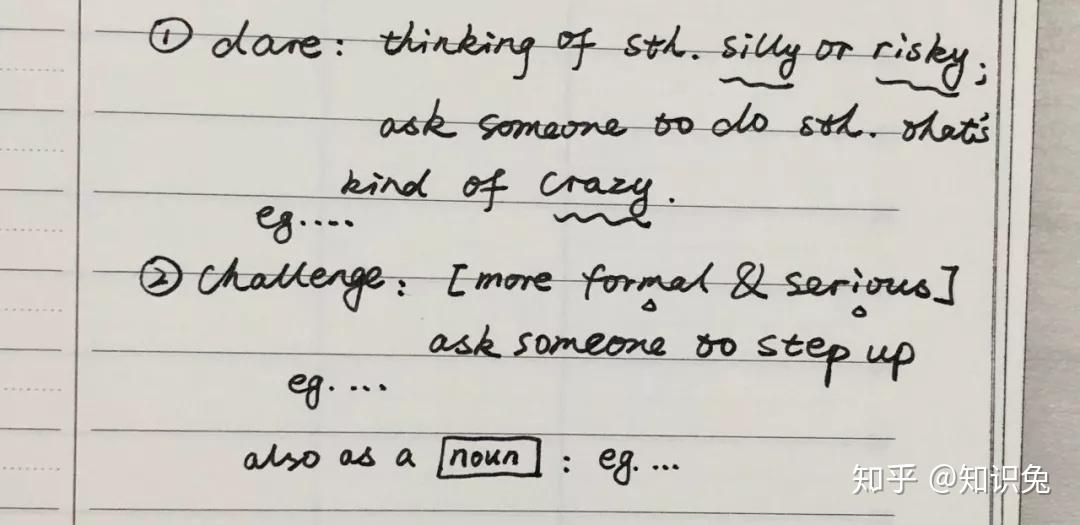 ① dare: thinking of sth. silly or risky;
ask someone to do sth. that's
kind of crazy.
eg....
② challenge: [more formal & serious]
ask someone to step up
eg. ...
also as a noun : eg. ...
知乎 @知识兔